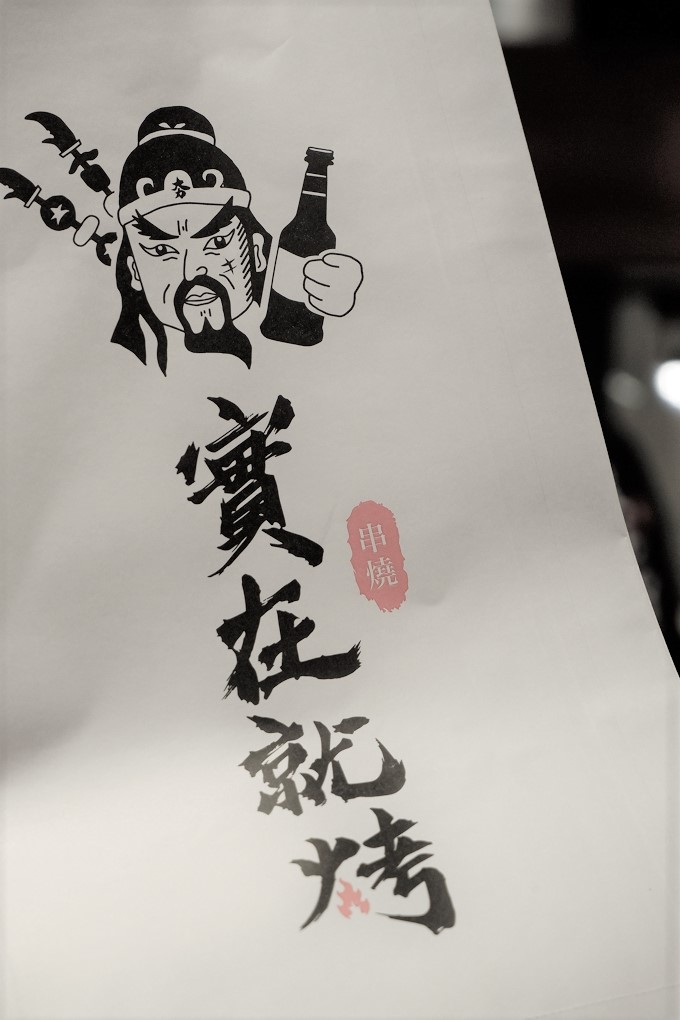 夯
實在就烤
串燒